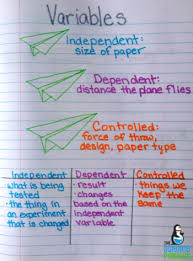 Variables
Independent:
size of paper
Dependent:
distance the plane flies
Controlled:
force of throw,
design, paper type
Independent
what is being
tested
the thing in
an experiment
that is changed
Dependent
• result
• changes
based on the
independent
variable
Controlled
• things we
keep the
same
THE